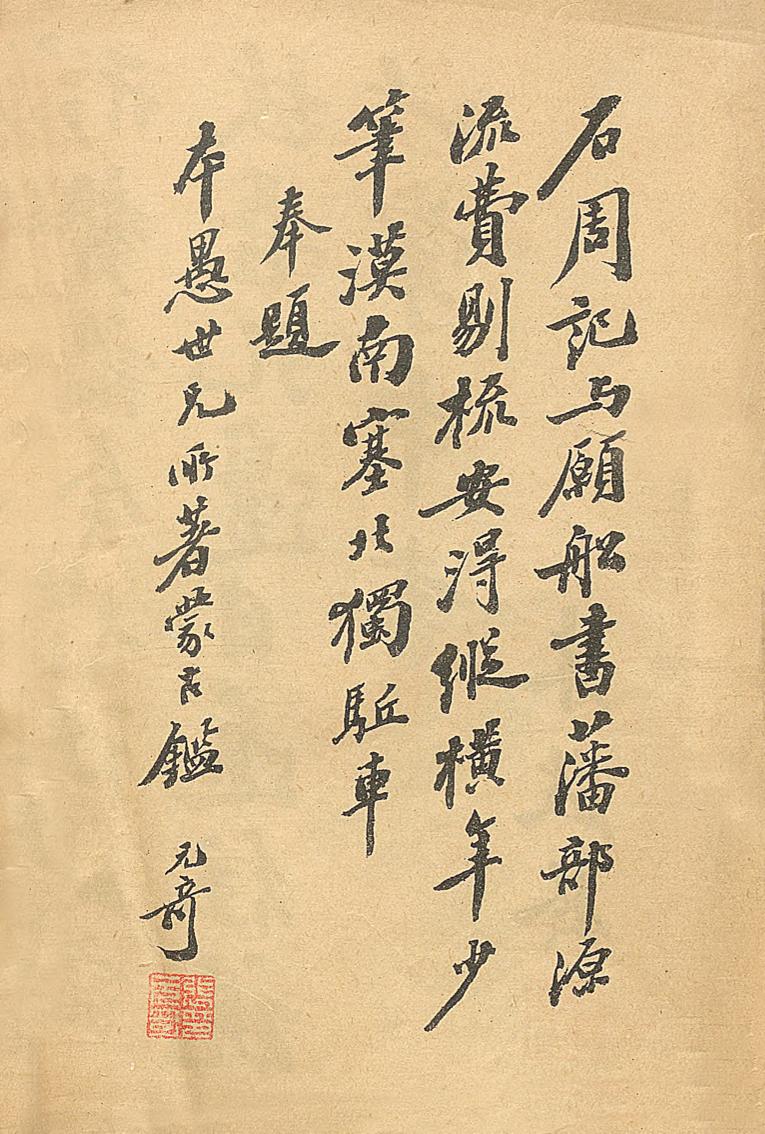 石周記与願船書藩部源
流費剔梳安得縱橫年少
筆漠南塞北獨駈車
奉題
本愚世兄所著蒙古鑑 元奇